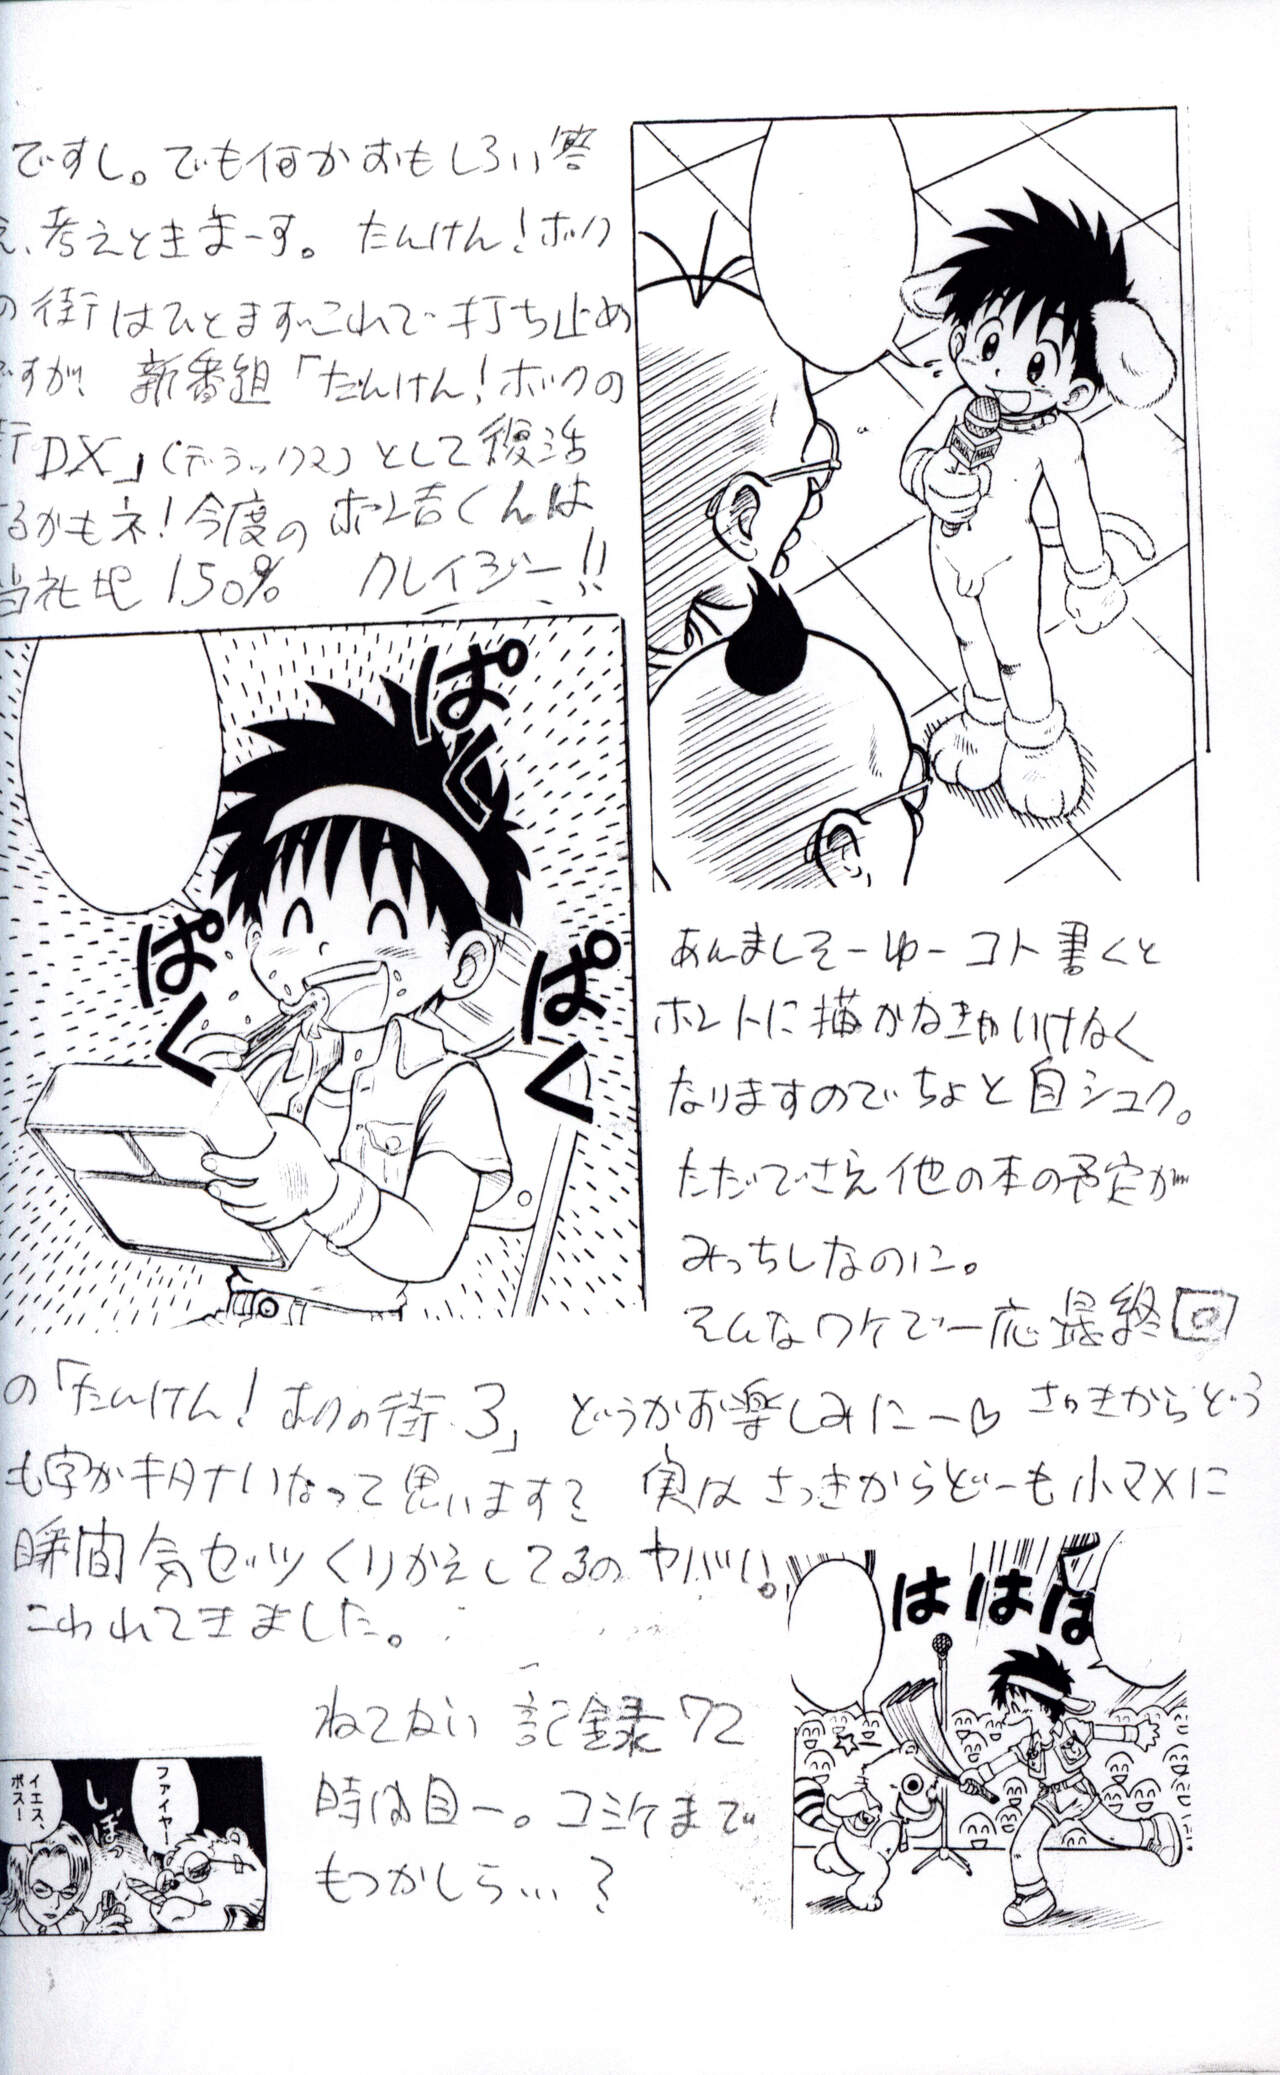 ですし。でも何かおもしろい答
え、考えときまーす。たんけん!ボク
の街はひとまずこれで打ち止め
ですが、新番組「たんけん!ボクの
街DX」(デラックス)として復活
するかもネ!今度のホン吉くんは
当社比150%クレイジー!!
ぱく
ぱく
ぱく
MHK MHK
あんましそーゆーコト書くと
ホントに描かなきゃいけなく
なりますのでちょと自シュク。
ただでさえ他の本の予定が
みっちしなのに。
そんなワケで一応最終回
の「たんけん!ボクの街3」どうかお楽しみにー♡さっきからどう
も字がキタナいなって思いますて 実はさっきからどーも小マメに
瞬間気ゼツくりかえしてるのヤバい。
こわれてきました。
ねてない記録72
時間目ー。コミケまで
もつかしら…?
ははは
ファイヤー
しぼっ
イエス、
ボスー!